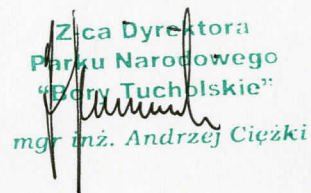 Z-ca Dyrektora
Parku Narodowego
"Bory Tucholskie"
mgr inż. Andrzej Ciężki